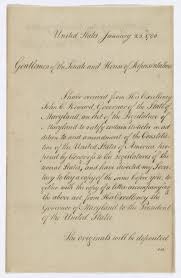 United States January 25, 1790.
Gentlemen of the Senate and House of Representatives
I have received from His Excellency
John E. Howard, Governor of the State of
Maryland, an Act of the Legislature of
Maryland to ratify certain articles in ad
dition to and amendment of the Constitu
tion of the United States of America, pro
posed by Congress to the Legislatures of the
several States; and have directed my Secre
tary to lay a copy of the same before you, to
gether with the copy of a letter accompanying
the above act from His Excellency the
Governor of Maryland to the President
of the United States.
The originals will be deposited